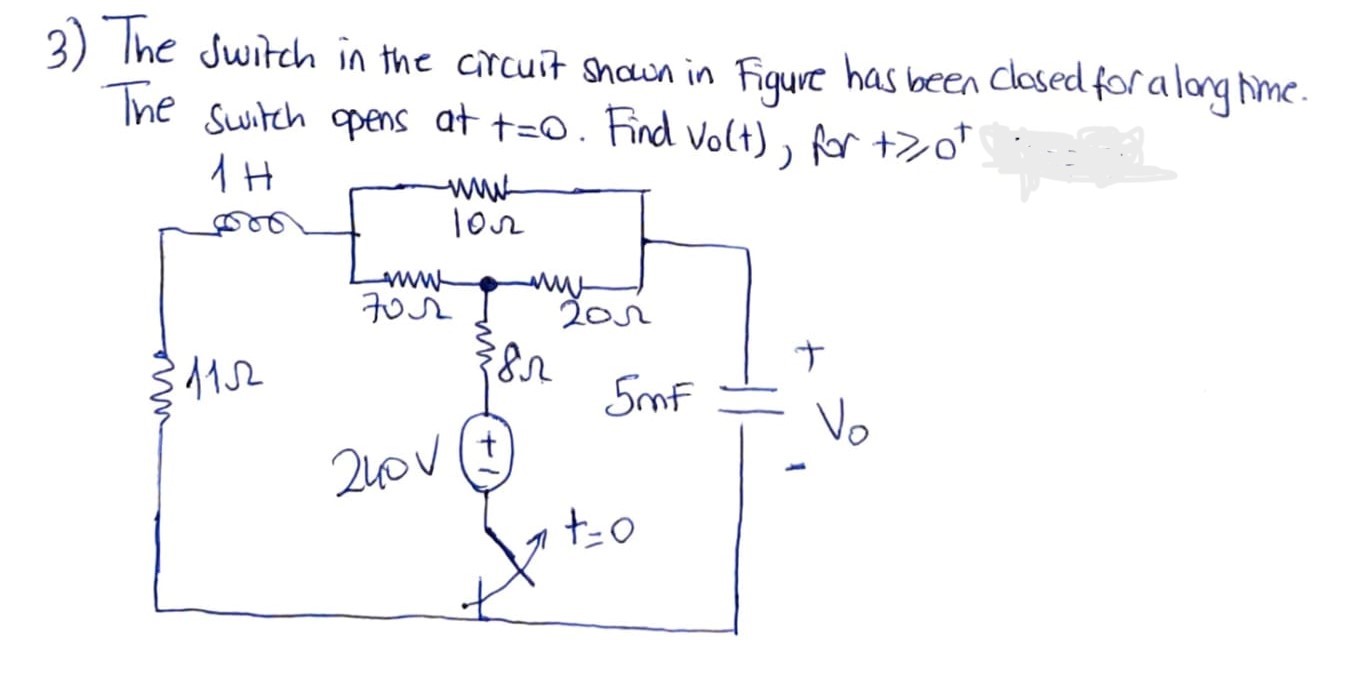 3) The switch in the circuit shown in Figure has been closed for a long time.
The switch opens at t=0. Find Vo(t), for t≥0⁺
1 H
10Ω
70Ω
20Ω
8Ω
11Ω
5mF
+
Vo
-
240V
+
-
t=0